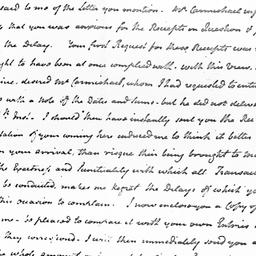 said to me of the Letter you mention. Mr Carmichael
that you was anxious for the Receipts in Question &
the Delay. Your first Request for these Receipts was
ght to have been at once complied with. With this View,
ine, desired Mr Carmichael, whom I had requested to
with a Note of the Dates and Sums. but he did not
it. I should then have instantly sent you the
lation of your coming here induced me to think it better
your arrival, than risque their being brought to
the Exactness and Punctuality with which all
be conducted, makes me regret the Delays of which
this occasion to complain. I now enclose you a Copy of
me. be pleased to compare it with your own Entries
they correspond. I will then immediately send you
whole amount